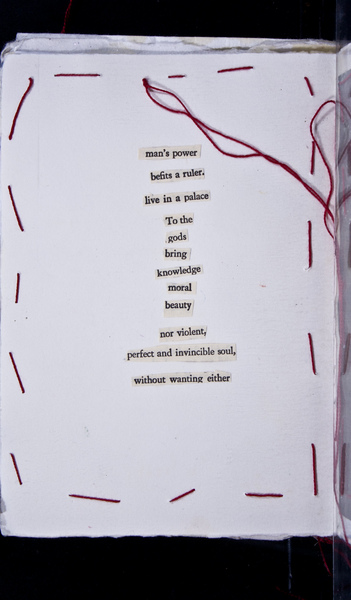 man's power
befits a ruler.
live in a palace
To the
gods
bring
knowledge
moral
beauty
nor violent,
perfect and invincible soul,
without wanting either